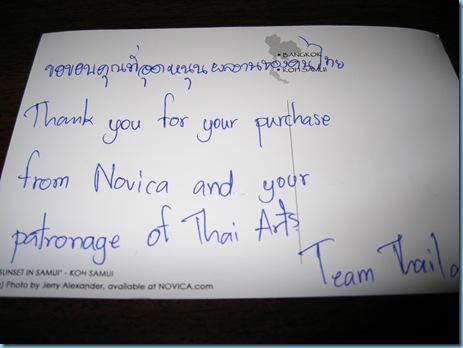 • BANGKOK
• KOH SAMUI
ขอขอบคุณที่อุดหนุนผลงานของคนไทย
Thank you for your purchase
from Novica and your
patronage of Thai Arts.
Team Thaila
SUNSET IN SAMUI" - KOH SAMUI
Photo by Jerry Alexander, available at NOVICA.com